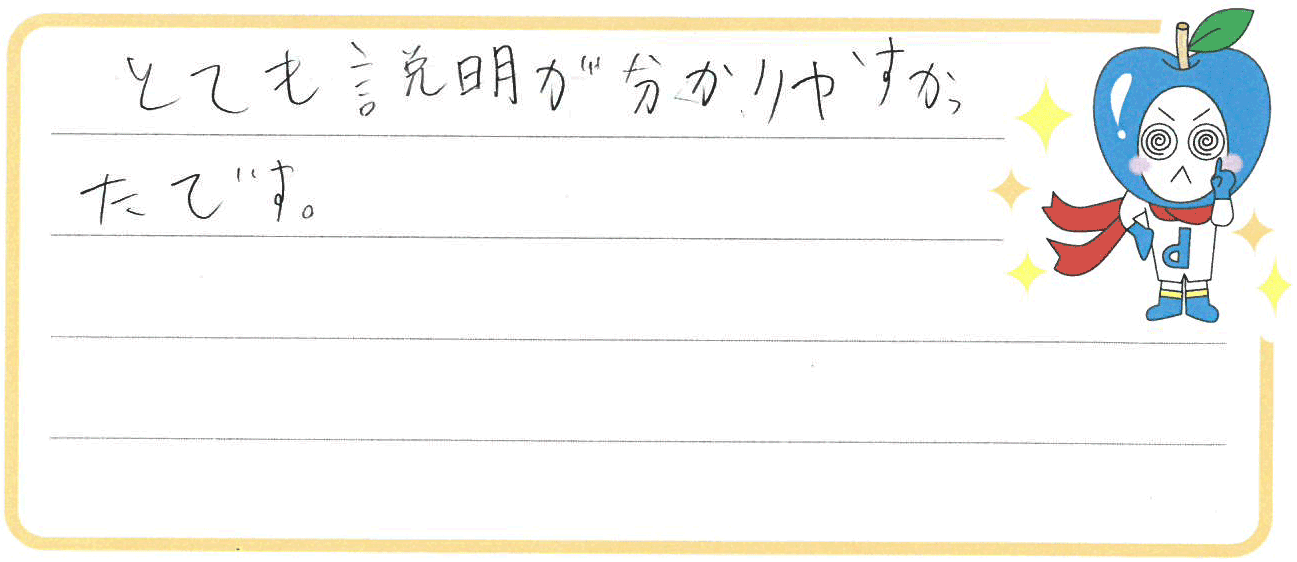 とても説明が分かりやすかっ
たです。
d